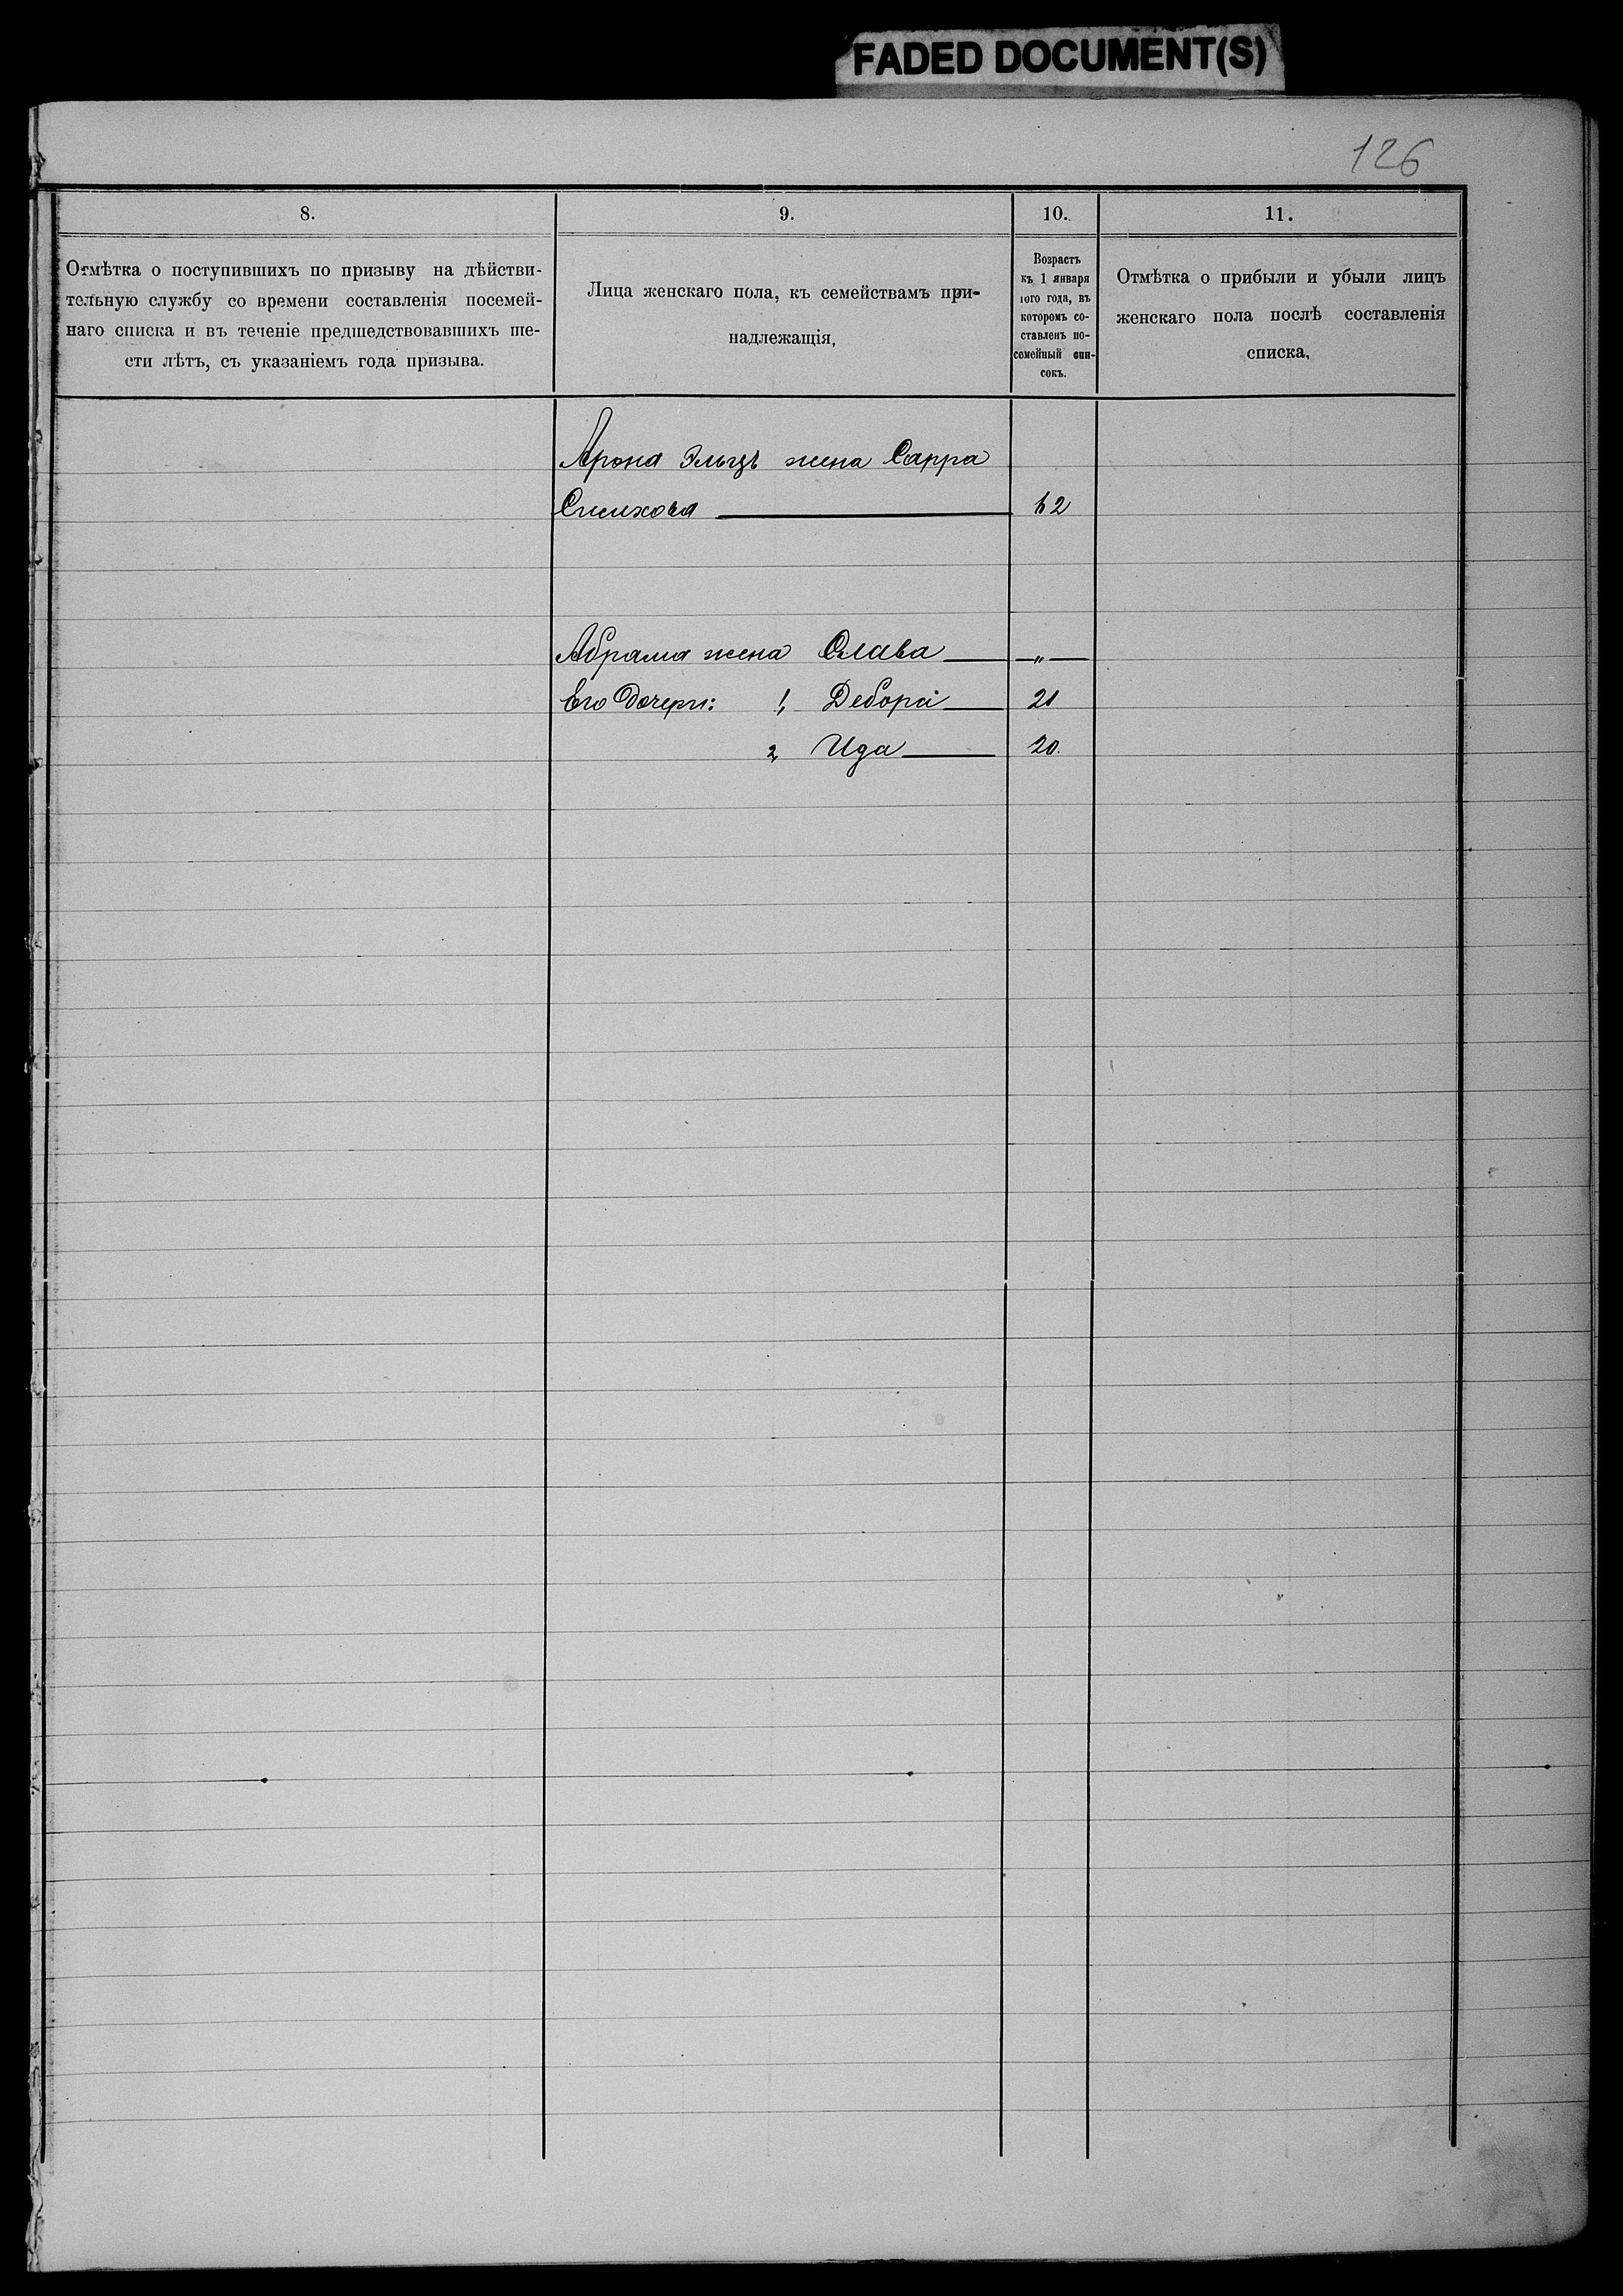 FADED DOCUMENT(S)
126
8.
9.
10.
11.
Отмѣтка о поступившихъ по призыву на дѣйстви-
тельную службу со времени составленія посемей-
наго списка и въ теченіе предшедствовавшихъ ше-
сти лѣтъ, съ указаніемъ года призыва.
Лица женскаго пола, къ семействамъ при-
надлежащія,
Возрастъ
къ 1 января
того года, въ
которомъ со-
ставленъ по-
семейный спи-
сокъ.
Отмѣтка о прибыли и убыли лицъ
женскаго пола послѣ составленія
списка,
Арона жена Сарра
62
Абрама жена Слава — „ —
Его дочери: 1, Дебора 21
2, Ида 20.